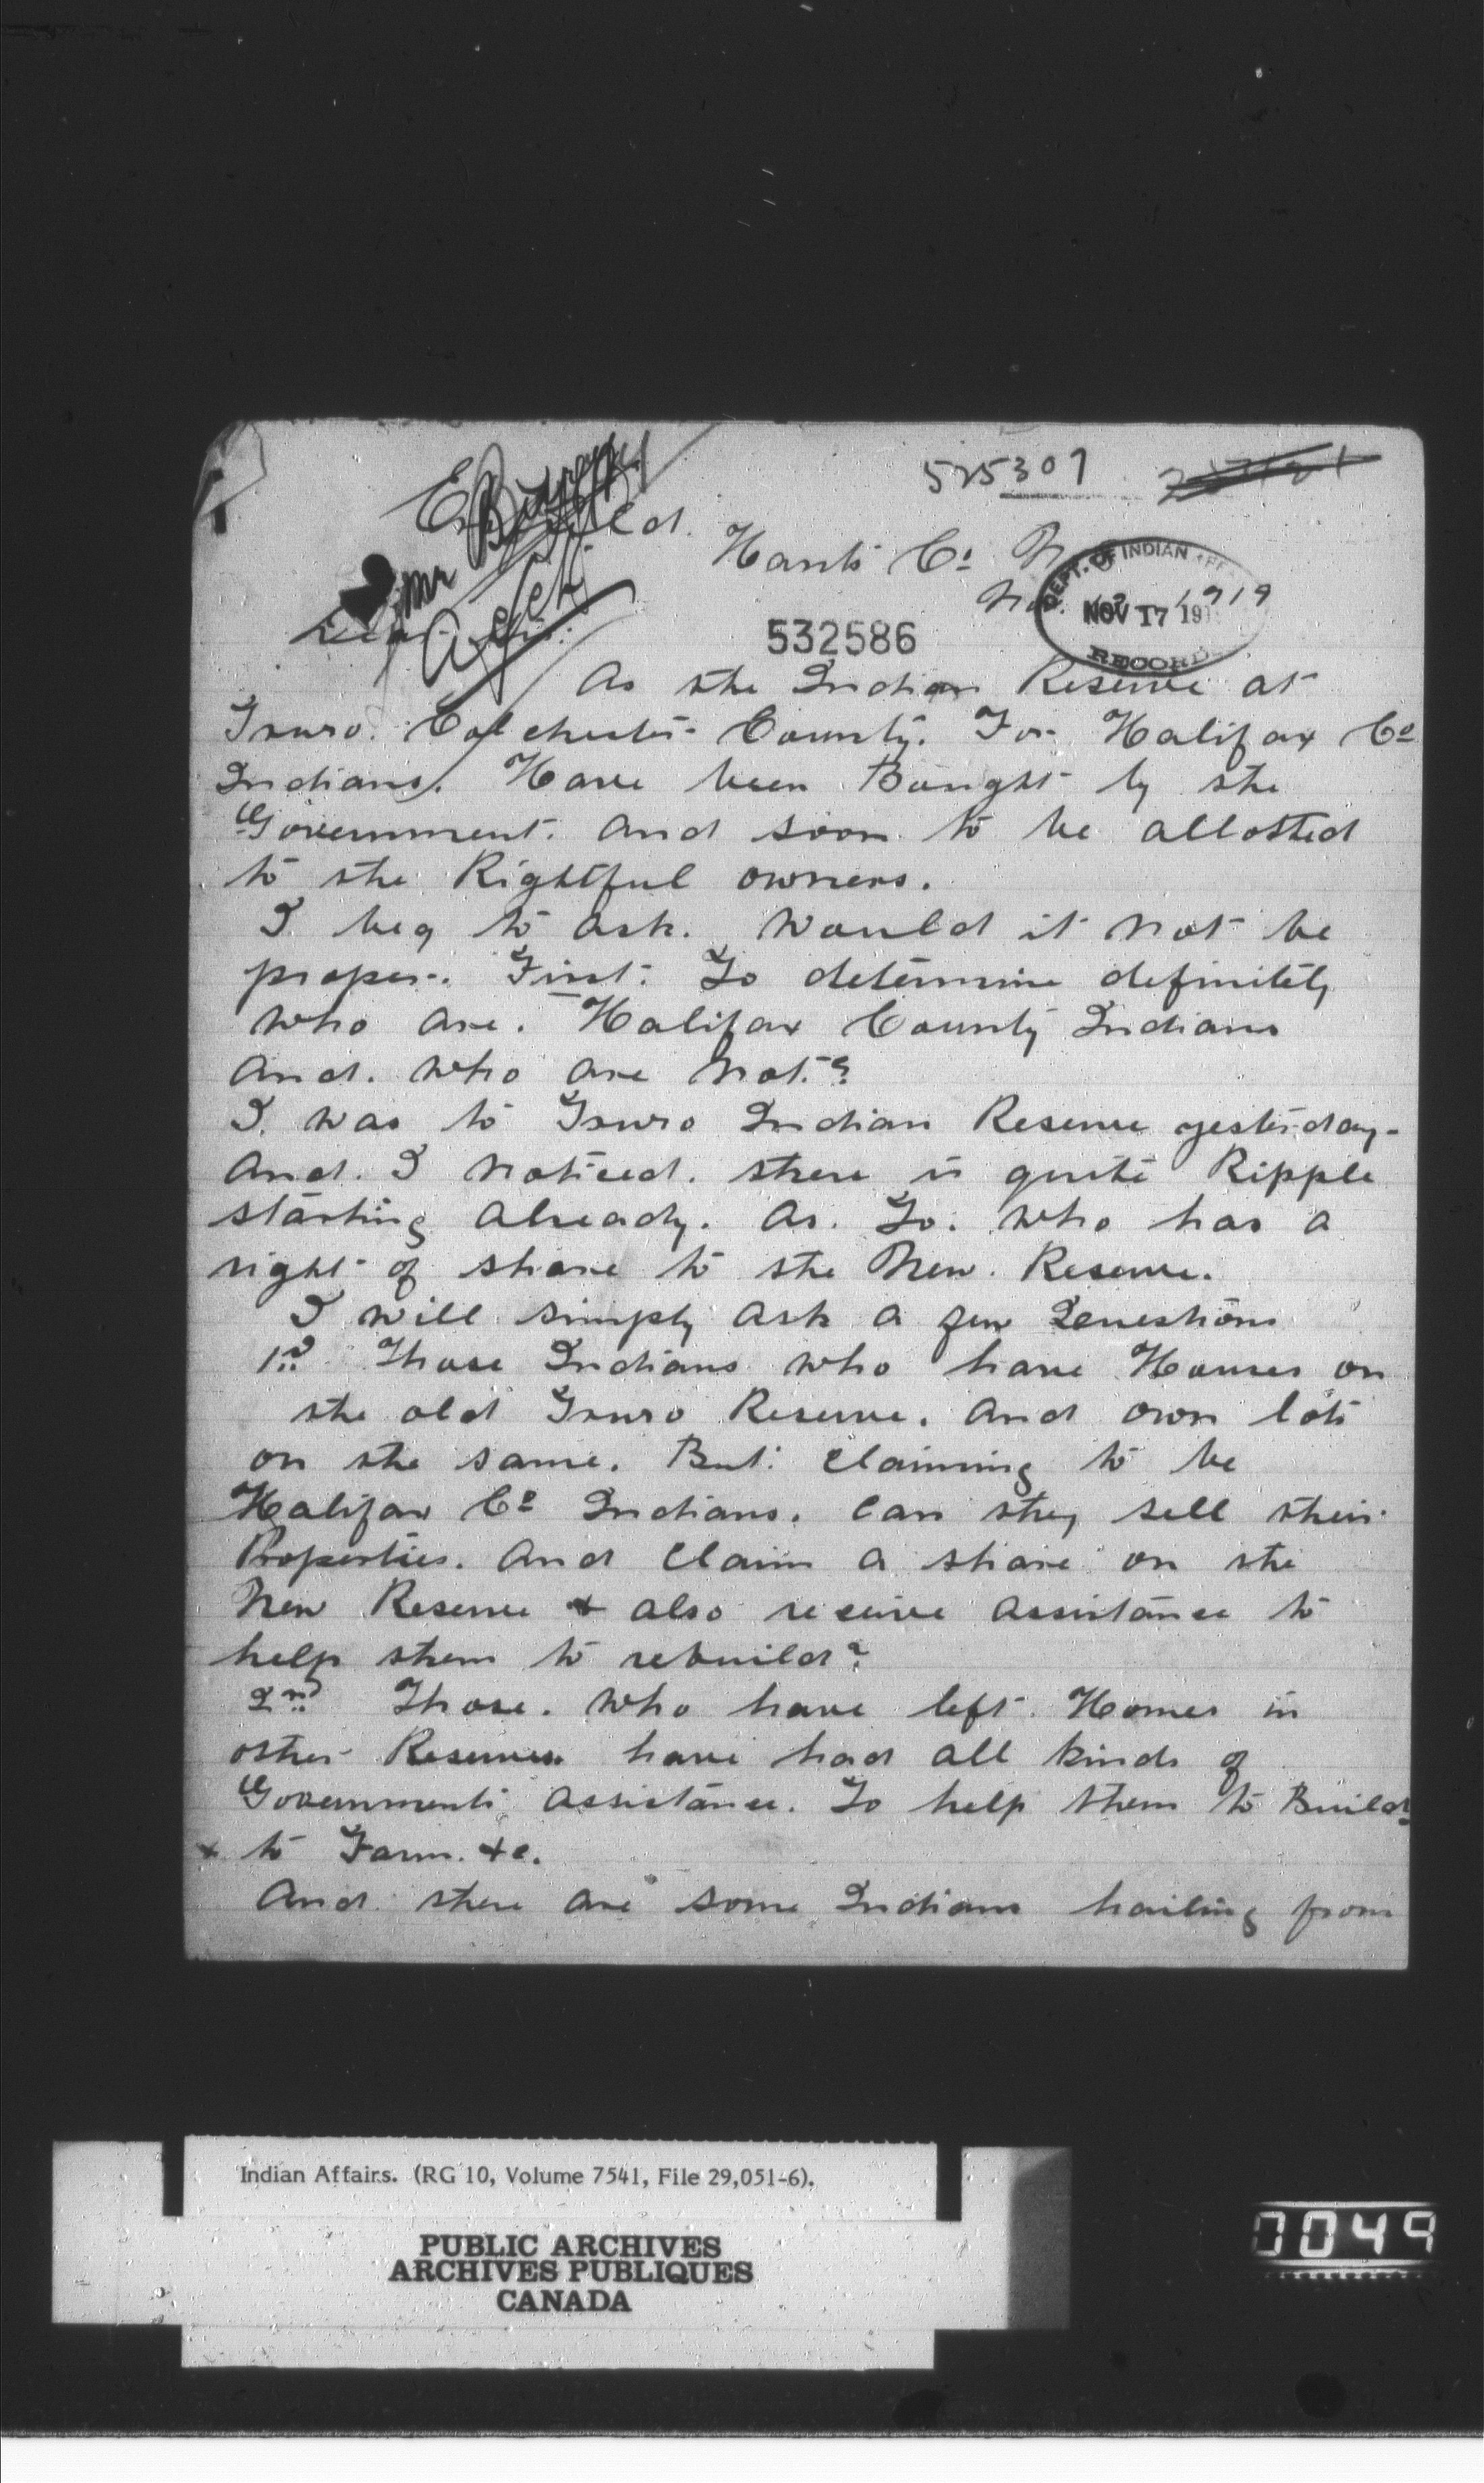 525307
Hants Co. N
DEPT. OF INDIAN AFF
NOV 17 191
RECORD
1919
Mr
Dear Sir:
532586
As the Indian Reserve at
Truro. Colchester County. For Halifax Co
Indians. Have been Bought by the
Government. And soon to be allotted
to the Rightful owners.
I beg to ask. Would it not be
proper. First. To determine definitely
who are. Halifax County Indians
And. who are not.?
I. was to Truro Indian Reserve yesterday-
And. I noticed. there is quite Ripple
starting Already. As. To. who has a
right of share to the New. Reserve.
I will simply ask a few Questions
1st. Those Indians who have Houses on
the old Truro Reserve. And own lots
on the same. But. claiming to be
Halifax Co Indians. Can they sell their
Properties. And Claim a share on the
New Reserve & also receive Assistance to
help them to rebuild?
2nd Those. who have left. Homes in
other Reserves have had all kinds of
Governments Assistance. To help them to Build
& to Farm. &c.
And there are some Indians hailing from
Indian Affairs. (RG 10, Volume 7541, File 29,051-6).
PUBLIC ARCHIVES
ARCHIVES PUBLIQUES
CANADA
0049